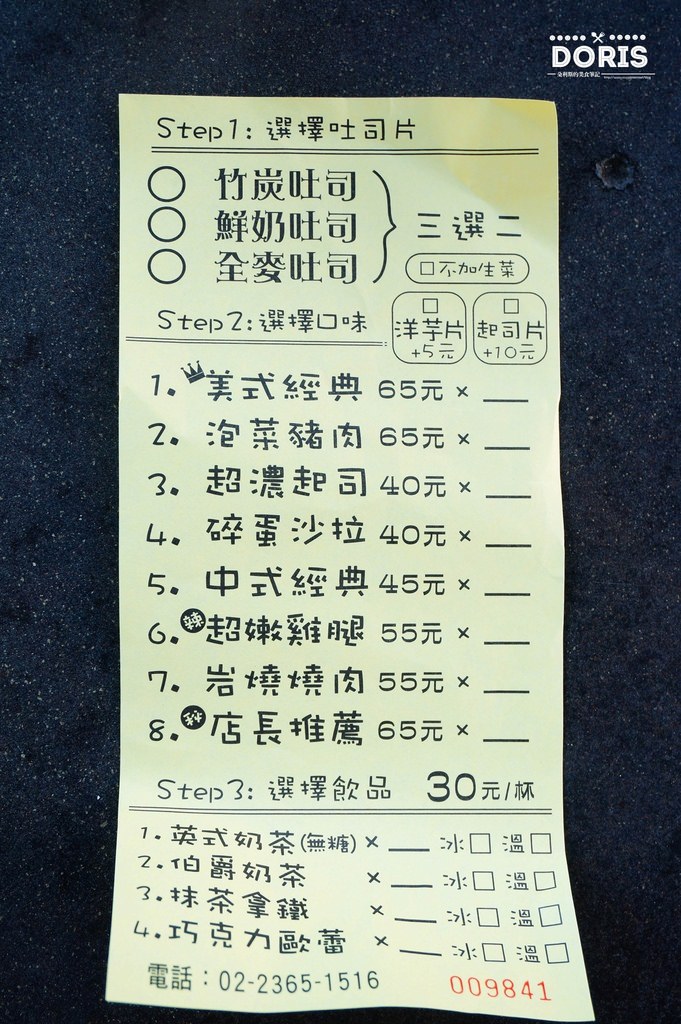 DORIS
朵利斯的美食筆記
Step1: 選擇吐司片
竹炭吐司
鮮奶吐司
全麥吐司
三選二
□不加生菜
Step2:選擇口味
□ 洋芋片 +5元
□ 起司片 +10元
1. 美式經典 65元 × __
2. 泡菜豬肉 65元 × __
3. 超濃起司 40元 × __
4. 碎蛋沙拉 40元 × __
5. 中式經典 45元 × __
6. 辣 超嫩雞腿 55元 × __
7. 岩燒燒肉 55元 × __
8. 店長推薦 65元 × __
Step3: 選擇飲品 30元/杯
1. 英式奶茶(無糖) × __ 冰□ 溫□
2. 伯爵奶茶 × __ 冰□ 溫□
3. 抹茶拿鐵 × __ 冰□ 溫□
4. 巧克力歐蕾 × __ 冰□ 溫□
電話：02-2365-1516
009841